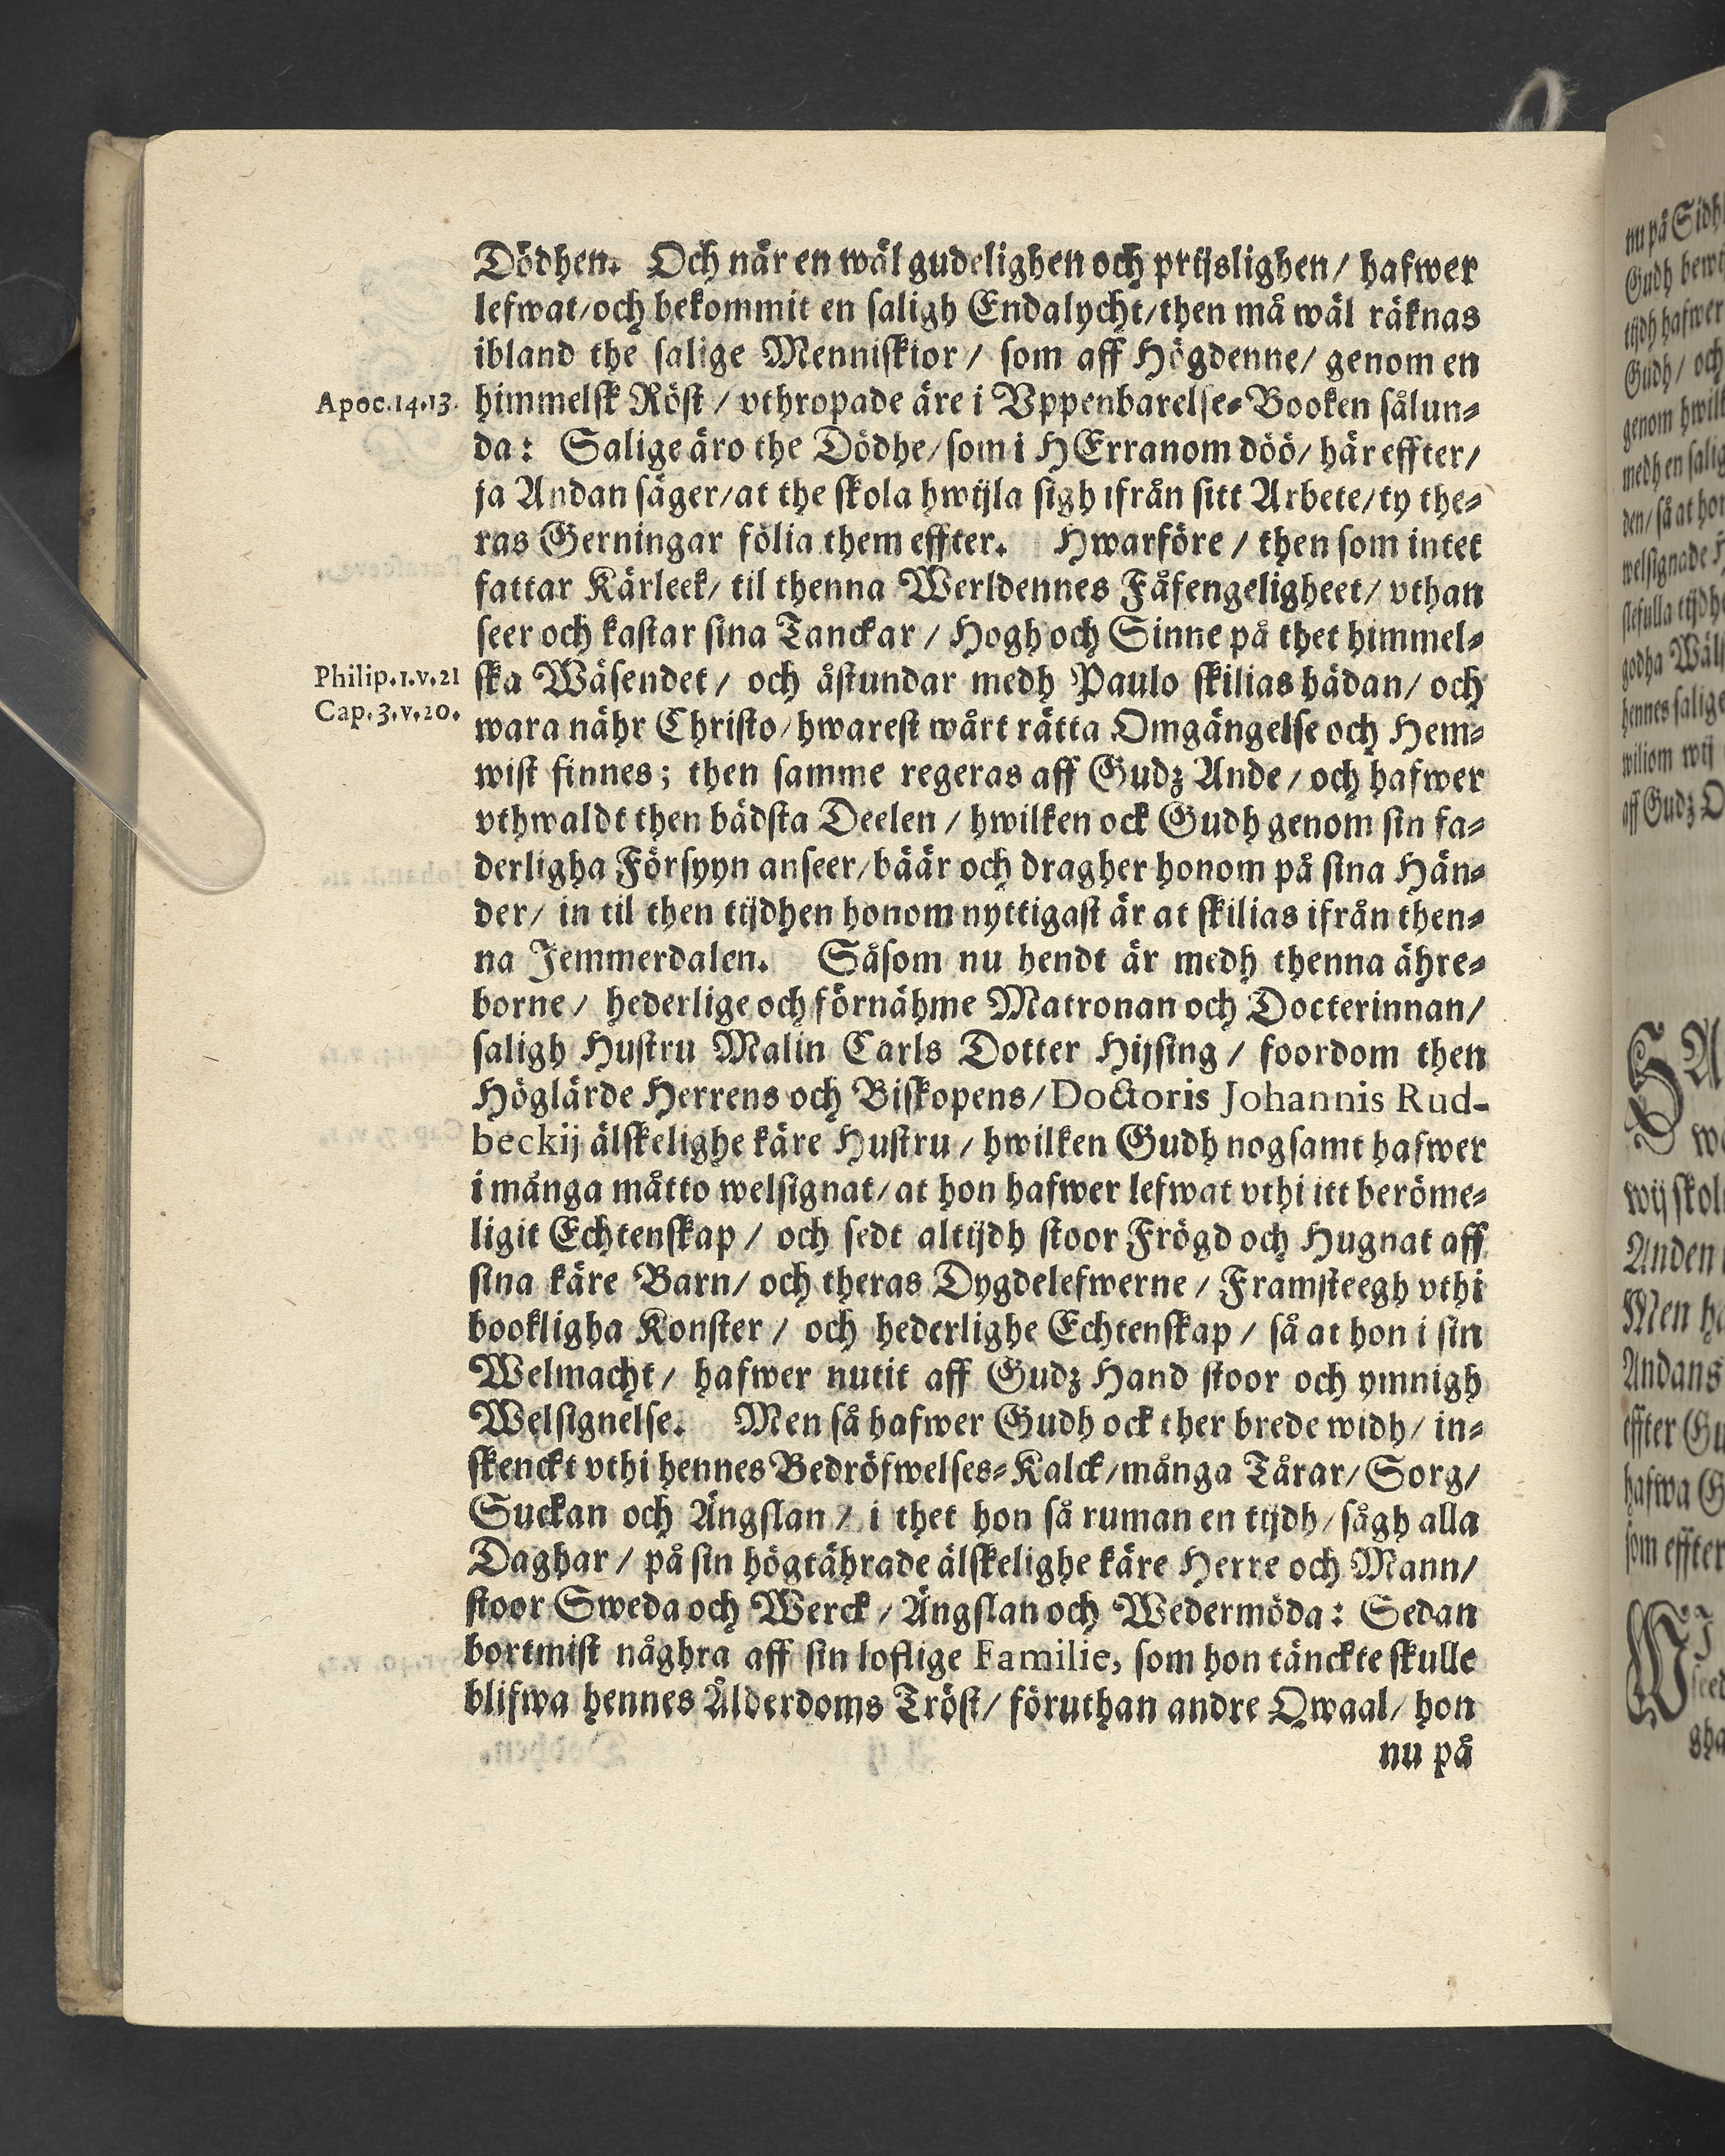 Dödhen. Och när en wäl gudelighen och prijslighen/ hafwer
lefwat/och bekommit en saligh Endalycht/then må wäl räknas
ibland the salige Menniskior/ som aff Högdenne/ genom en
Apoc.14.13.
himmelsk Röst/ vthropade äre i Vppenbarelse-Booken sålun-
da: Salige äro the Dödhe/som i HErranom döö/ här effter/
ja Andan säger/at the skola hwijla sigh ifrån sitt Arbete/ty the-
ras Gerningar fölia them effter. Hwarföre/ then som intet
fattar Kärleek/ til thenna Werldennes Fåfengeligheet/ vthan
seer och kastar sina Tanckar/ Hogh och Sinne på thet himmel-
Philip.1.v.21
ska Wäsendet/ och åstundar medh Paulo skilias hädan/ och
Cap.3.v.20.
wara nähr Christo/hwarest wårt rätta Omgängelse och Hem-
wist finnes; then samme regeras aff Gudz Ande/ och hafwer
vthwaldt then bädsta Deelen/ hwilken ock Gudh genom sin fa-
derligha Försyyn anseer/bäär och dragher honom på sina Hän-
der/ in til then tijdhen honom nyttigast är at skilias ifrån then-
na Jemmerdalen. Såsom nu hendt är medh thenna ähre-
borne/ hederlige och förnähme Matronan och Docterinnan/
saligh Hustru Malin Carls Dotter Hijsing/ foordom then
Höglärde Herrens och Biskopens/Doctoris Johannis Rud-
beckij älskelighe käre Hustru/ hwilken Gudh nogsamt hafwer
i många måtto welsignat/at hon hafwer lefwat vthi itt beröme-
ligit Echtenskap/ och sedt altijdh stoor Frögd och Hugnat aff
sina käre Barn/ och theras Dygdelefwerne/ Framsteegh vthi
bookligha Konster/ och hederlighe Echtenskap/ så at hon i sin
Welmacht/ hafwer nutit aff Gudz Hand stoor och ymnigh
Welsignelse. Men så hafwer Gudh ock ther brede widh/ in-
skenckt vthi hennes Bedröfwelses-Kalck/många Tårar/Sorg/
Suckan och Ängslan/ i thet hon så ruman en tijdh/sågh alla
Daghar/ på sin högtährade älskelighe käre Herre och Mann/
stoor Sweda och Werck/Ängslan och Wedermöda: Sedan
bortmist någhra aff sin loflige Familie, som hon tänckte skulle
blifwa hennes Ålderdoms Tröst/ föruthan andre Qwaal/ hon
nu på
nu på Sidh
Gudh bew
tijdh hafwer
Gudh/ och
genom hwilk
medh en salig
den/ så at hon
welsignade H
slefulla tijdh
godha Wäl
hennes salige
wiliom wij
aff Gudz O
SA
wij skol
Anden
Men ha
Andans
effter Gu
hafwa G
som effter
gha